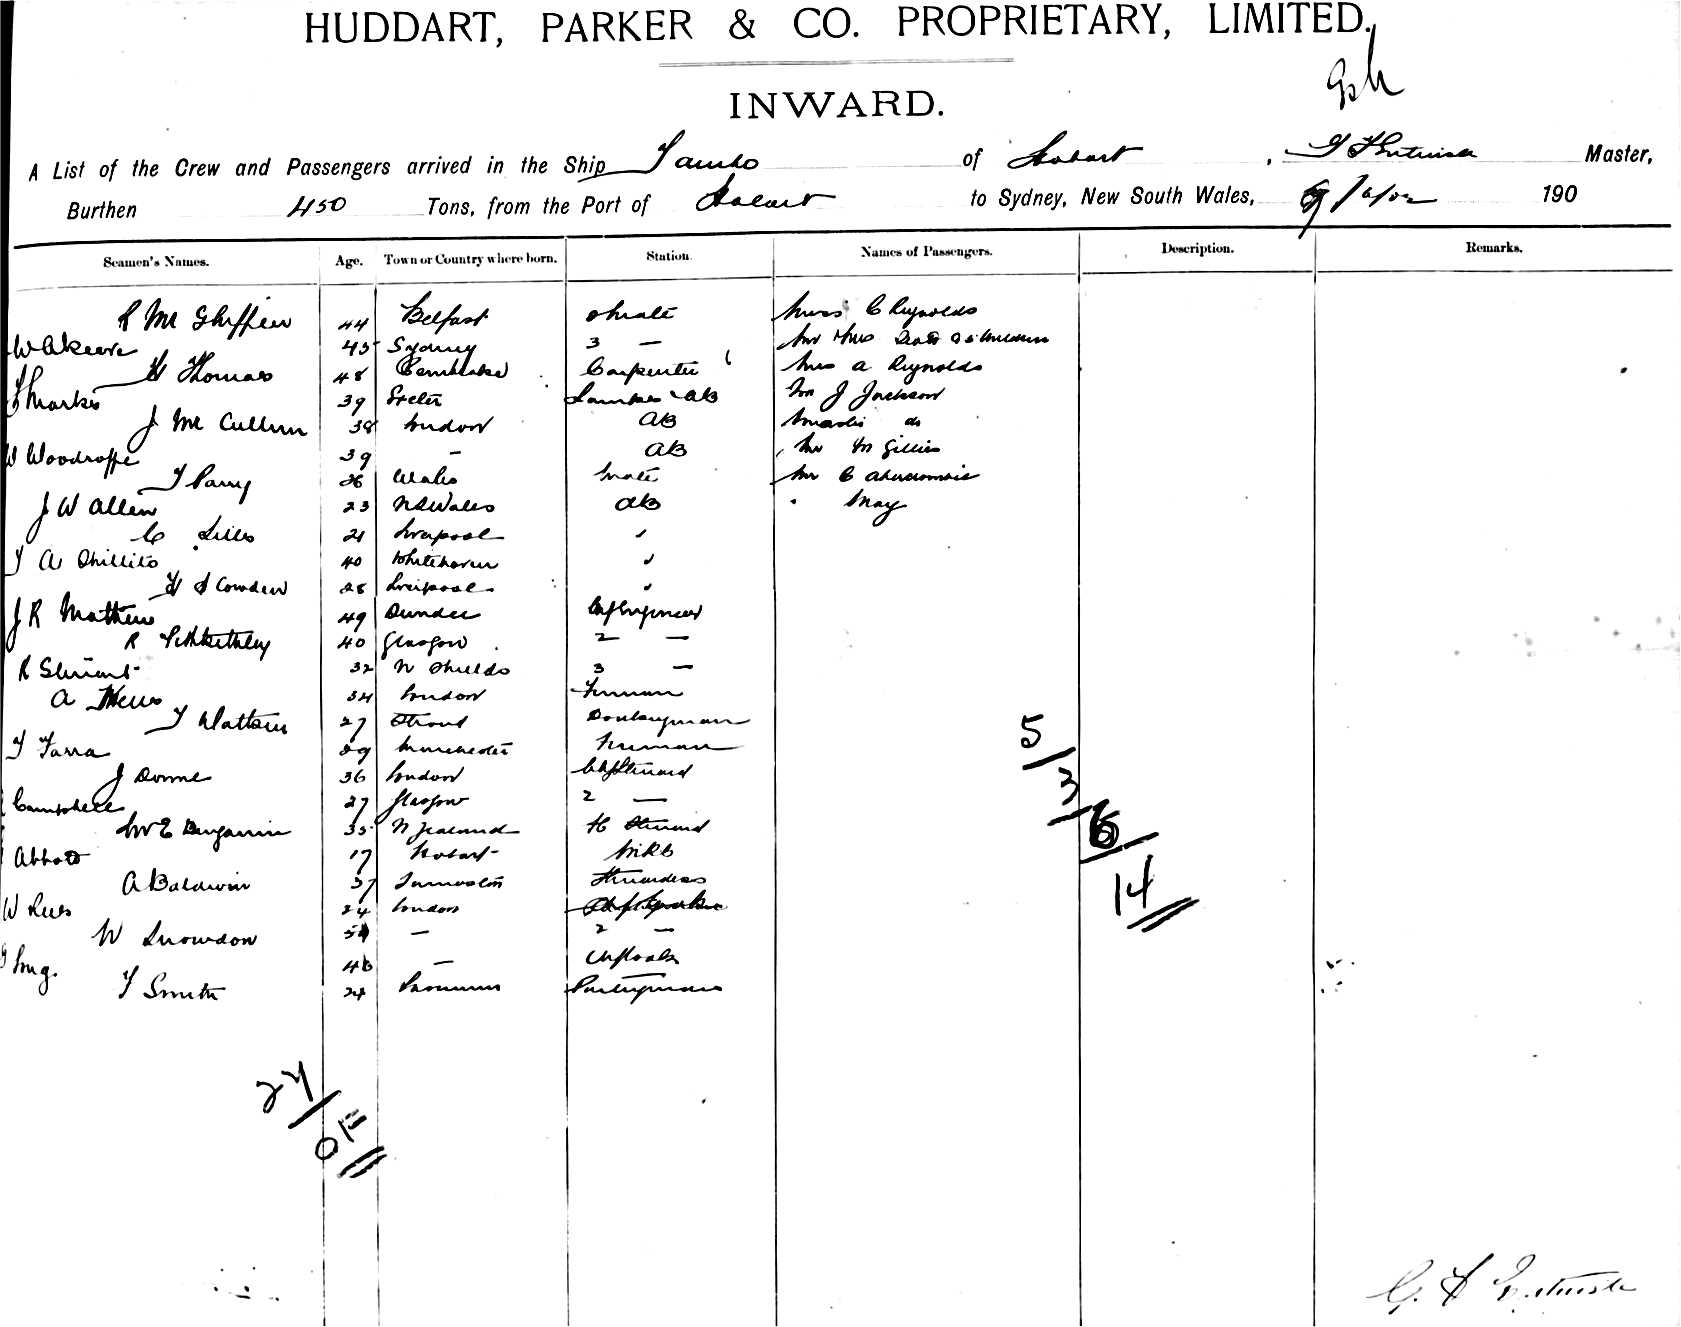 HUDDART, PARKER & CO. PROPRIETARY, LIMITED.
INWARD.
A List of the Crew and Passengers arrived in the Ship Tambo of Hobart, Master,
Burthen 450 Tons, from the Port of Hobart to Sydney, New South Wales, 9/6/02 190
Seamen's Names. Age. Town or Country where born. Station Names of Passengers. Description. Remarks.
R Mc Ghiffien 44 Belfast 2 Mate Miss C Reynolds
W Akeera 45 Sydney 3 — Mr Mrs
H Thomas 48 Pembroke Carpenter Mrs A Reynolds
T Marks 39 Exeter Lamps AB Mr J Jackson
J Mc Cullum 38 London AB Master do
W Woodroffe 39 — AB Mr M Gillies
T Parry 26 Wales Mate Mr C Abercrombie
J W Allen 23 N S Wales AB " May
C Liles 21 Liverpool "
T A Shillito 40 Whitehaven "
H S Cowden 28 Liverpool "
J R Mathews 49 Dundee Chf Engineer
R 40 Glasgow 2 —
R Stewart 32 N Shields 3 —
A 34 London Fireman
T Watkins 27 Stroud Donkeyman
T Farra 29 Manchester Fireman
J Dorme 36 London Chf Steward
Campbell 27 Glasgow 2 —
Mr E Benjamin 35 N Zealand F C Steward
Abbott 17 Hobart
A Baldwin 37 Launceston Stewardess
W Lees 24 London
W Snowdon 54 — 2 —
46 — Chf Cook
T Smith 24 Pantryman
5/3
6/14
24/01
G. H. Entwistle